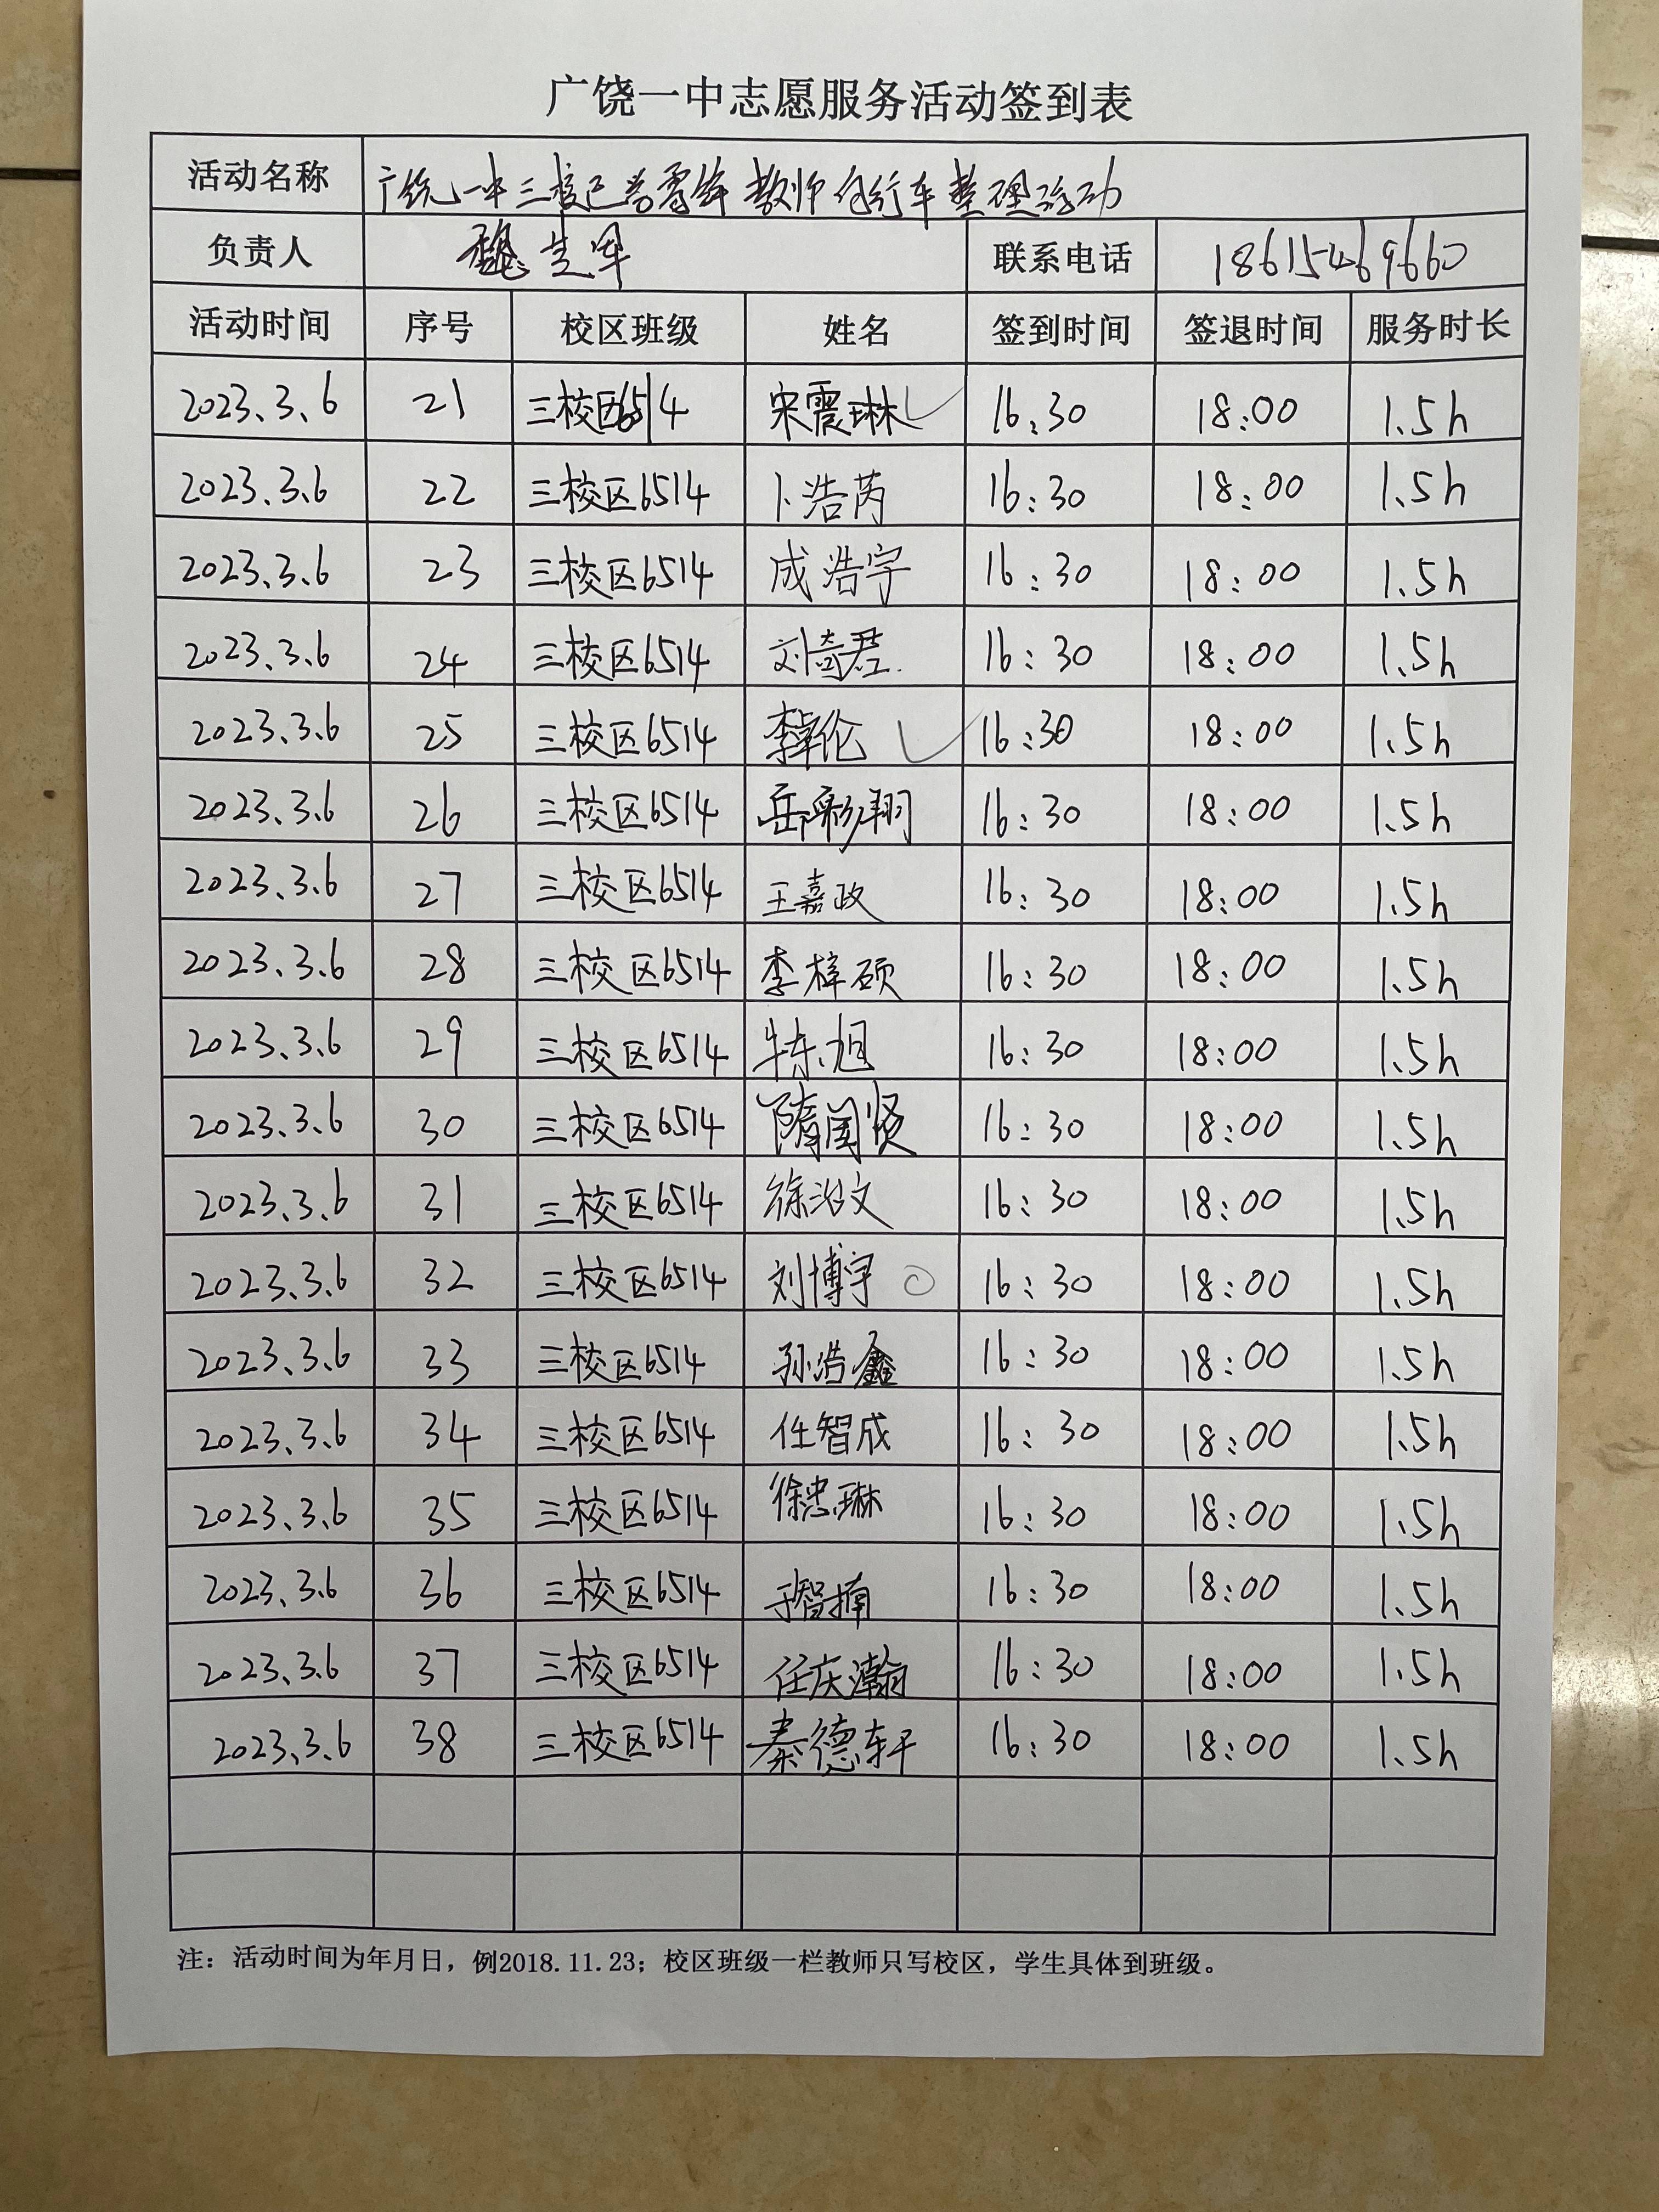 广饶一中志愿服务活动签到表
活动名称 广饶一中三校区学雷锋教师自行车整理活动
负责人 魏芝军 联系电话 18615469660
活动时间 序号 校区班级 姓名 签到时间 签退时间 服务时长
2023.3.6 21 三校区6514 宋震琳 16:30 18:00 1.5h
2023.3.6 22 三校区6514 卜浩芮 16:30 18:00 1.5h
2023.3.6 23 三校区6514 成浩宇 16:30 18:00 1.5h
2023.3.6 24 三校区6514 刘奇君 16:30 18:00 1.5h
2023.3.6 25 三校区6514 16:30 18:00 1.5h
2023.3.6 26 三校区6514 岳彩翔 16:30 18:00 1.5h
2023.3.6 27 三校区6514 王嘉政 16:30 18:00 1.5h
2023.3.6 28 三校区6514 李梓硕 16:30 18:00 1.5h
2023.3.6 29 三校区6514 16:30 18:00 1.5h
2023.3.6 30 三校区6514 16:30 18:00 1.5h
2023.3.6 31 三校区6514 徐浩文 16:30 18:00 1.5h
2023.3.6 32 三校区6514 刘博宇 16:30 18:00 1.5h
2023.3.6 33 三校区6514 孙浩鑫 16:30 18:00 1.5h
2023.3.6 34 三校区6514 任智成 16:30 18:00 1.5h
2023.3.6 35 三校区6514 徐忠琳 16:30 18:00 1.5h
2023.3.6 36 三校区6514 于智楠 16:30 18:00 1.5h
2023.3.6 37 三校区6514 任庆瀚 16:30 18:00 1.5h
2023.3.6 38 三校区6514 秦德轩 16:30 18:00 1.5h
注：活动时间为年月日，例2018.11.23；校区班级一栏教师只写校区，学生具体到班级。